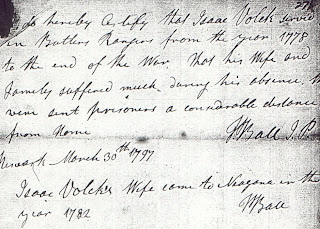 I do hereby Certify that Isaac Volck served
in Butlers Rangers from the year 1778
to the end of the War. that his Wife and
Family suffered much during his absence &
were sent prisoners a considarable distance
from home
JBall J.P
Newark March 30th 1797
Isaac Volcks Wife came to Neagara in the
year 1782
JBall